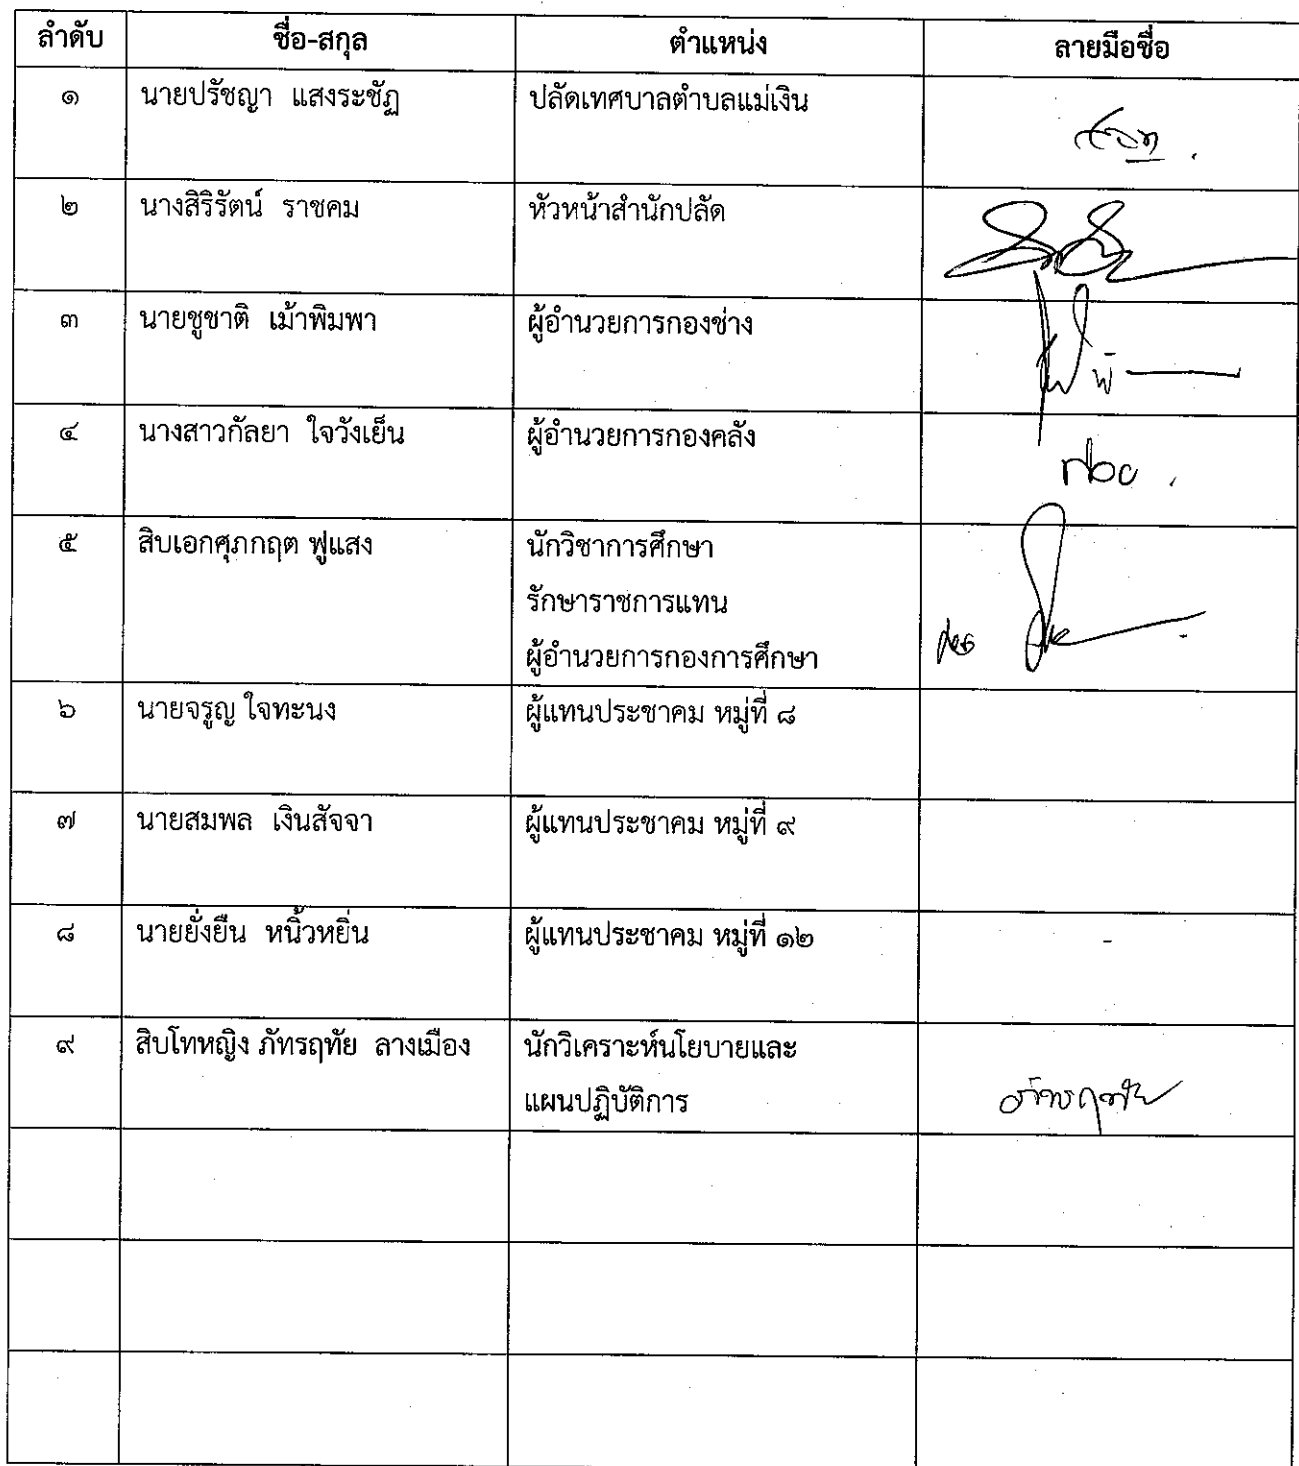 ลำดับ ชื่อ-สกุล ตำแหน่ง ลายมือชื่อ
๑ นายปรัชญา แสงระชัฏ ปลัดเทศบาลตำบลแม่เงิน
๒ นางสิริรัตน์ ราชคม หัวหน้าสำนักปลัด
๓ นายชูชาติ เม้าพิมพา ผู้อำนวยการกองช่าง
๔ นางสาวกัลยา ใจวังเย็น ผู้อำนวยการกองคลัง
๕ สิบเอกศุภกฤต ฟูแสง นักวิชาการศึกษา
รักษาราชการแทน
ผู้อำนวยการกองการศึกษา
๖ นายจรูญ ใจทะนง ผู้แทนประชาคม หมู่ที่ ๘
๗ นายสมพล เงินสัจจา ผู้แทนประชาคม หมู่ที่ ๙
๘ นายยั่งยืน หนิ้วหยิ่น ผู้แทนประชาคม หมู่ที่ ๑๒ -
๙ สิบโทหญิง ภัทรฤทัย ลางเมือง นักวิเคราะห์นโยบายและ
แผนปฏิบัติการ ภัทรฤทัย